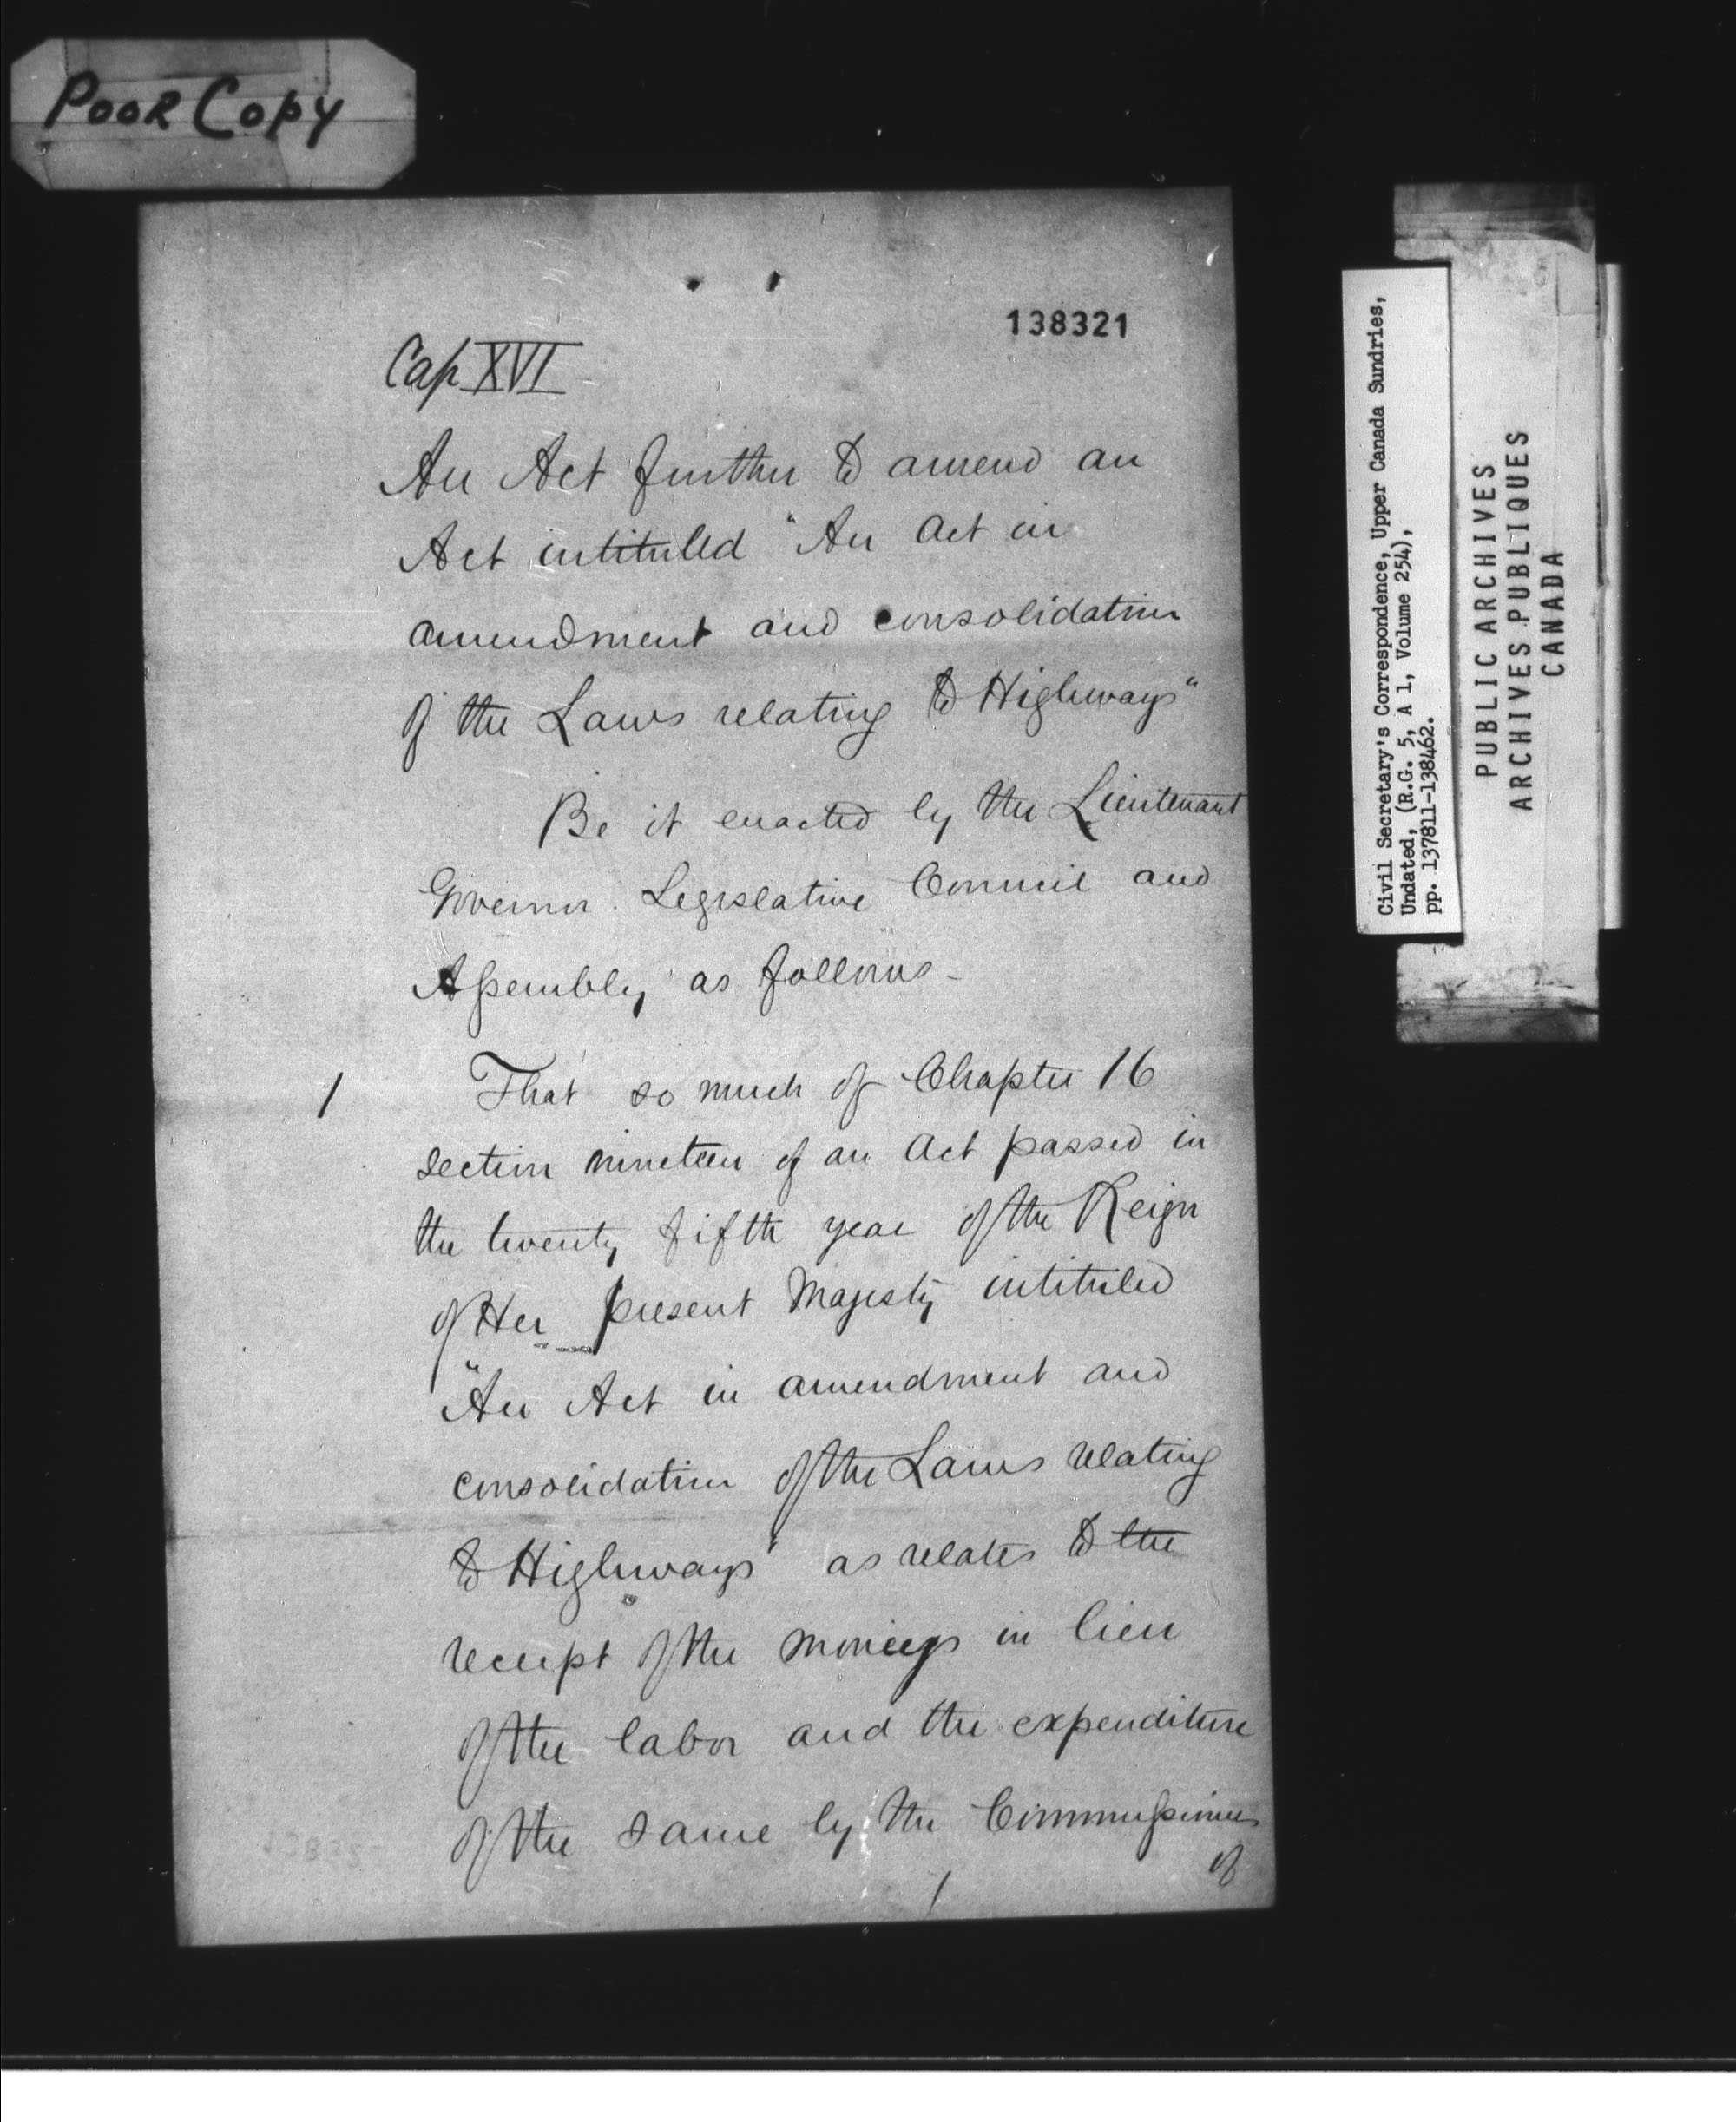 POOR COPY
138321
Cap XVI
An Act further to amend an
Act intituled "An Act in
amendment and consolidation
of the Laws relating to Highways"
Be it enacted by the Lieutenant
Governor Legislative Council and
Assembly as follows -
1 That so much of Chapter 16
section nineteen of an Act passed in
the twenty fifth year of the Reign
of Her present Majesty intituled
"An Act in amendment and
consolidation of the Laws relating
to Highways" as relates to the
receipt of the moneys in lieu
of the labor and the expenditure
of the same by the Commissioners
of
1
Civil Secretary's Correspondence, Upper Canada Sundries,
Undated, (R.G. 5, A 1, Volume 254),
pp. 137811-138462.
PUBLIC ARCHIVES
ARCHIVES PUBLIQUES
CANADA